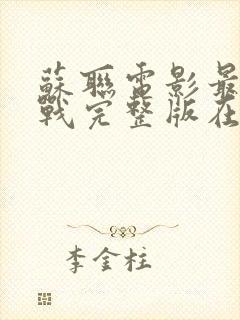 蘇聯電影最
戰完整版在
李金柱